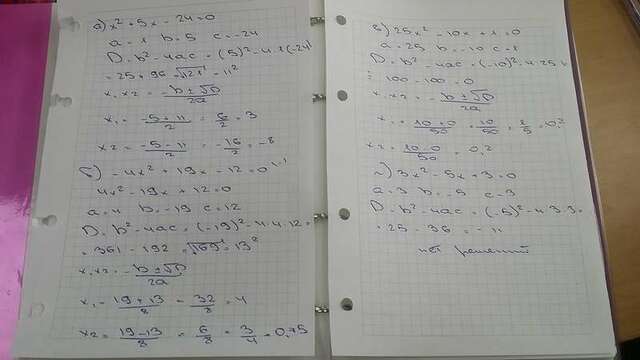 а) x² + 5x - 24 = 0
a = 1 b = 5 c = -24
D = b² - 4ac = (5)² - 4·1·(-24)
= 25 + 96 = √121 = 11²
x₁ x₂ = -b ± √D / 2a
x₁ = -5 + 11 / 2 = 6/2 = 3
x₂ = -5 - 11 / 2 = -16/2 = -8
б) -4x² + 19x - 12 = 0 |·-1
4x² - 19x + 12 = 0
a = 4 b = -19 c = 12
D = b² - 4ac = (-19)² - 4·4·12 =
= 361 - 192 = √169 = 13²
x₁ x₂ = -b ± √D / 2a
x₁ = 19 + 13 / 8 = 32/8 = 4
x₂ = 19 - 13 / 8 = 6/8 = 3/4 = 0,75
в) 25x² - 10x + 1 = 0
a = 25 b = -10 c = 1
D = b² - 4ac = (-10)² - 4·25·1
= 100 - 100 = 0
x₁ x₂ = -b ± √D / 2a
x₁ = 10 + 0 / 50 = 10/50 = 1/5 = 0,2
x₂ = 10 - 0 / 50 = 0,2
г) 3x² - 5x + 3 = 0
a = 3 b = -5 c = 3
D = b² - 4ac = (-5)² - 4·3·3 =
= 25 - 36 = -11
нет решений